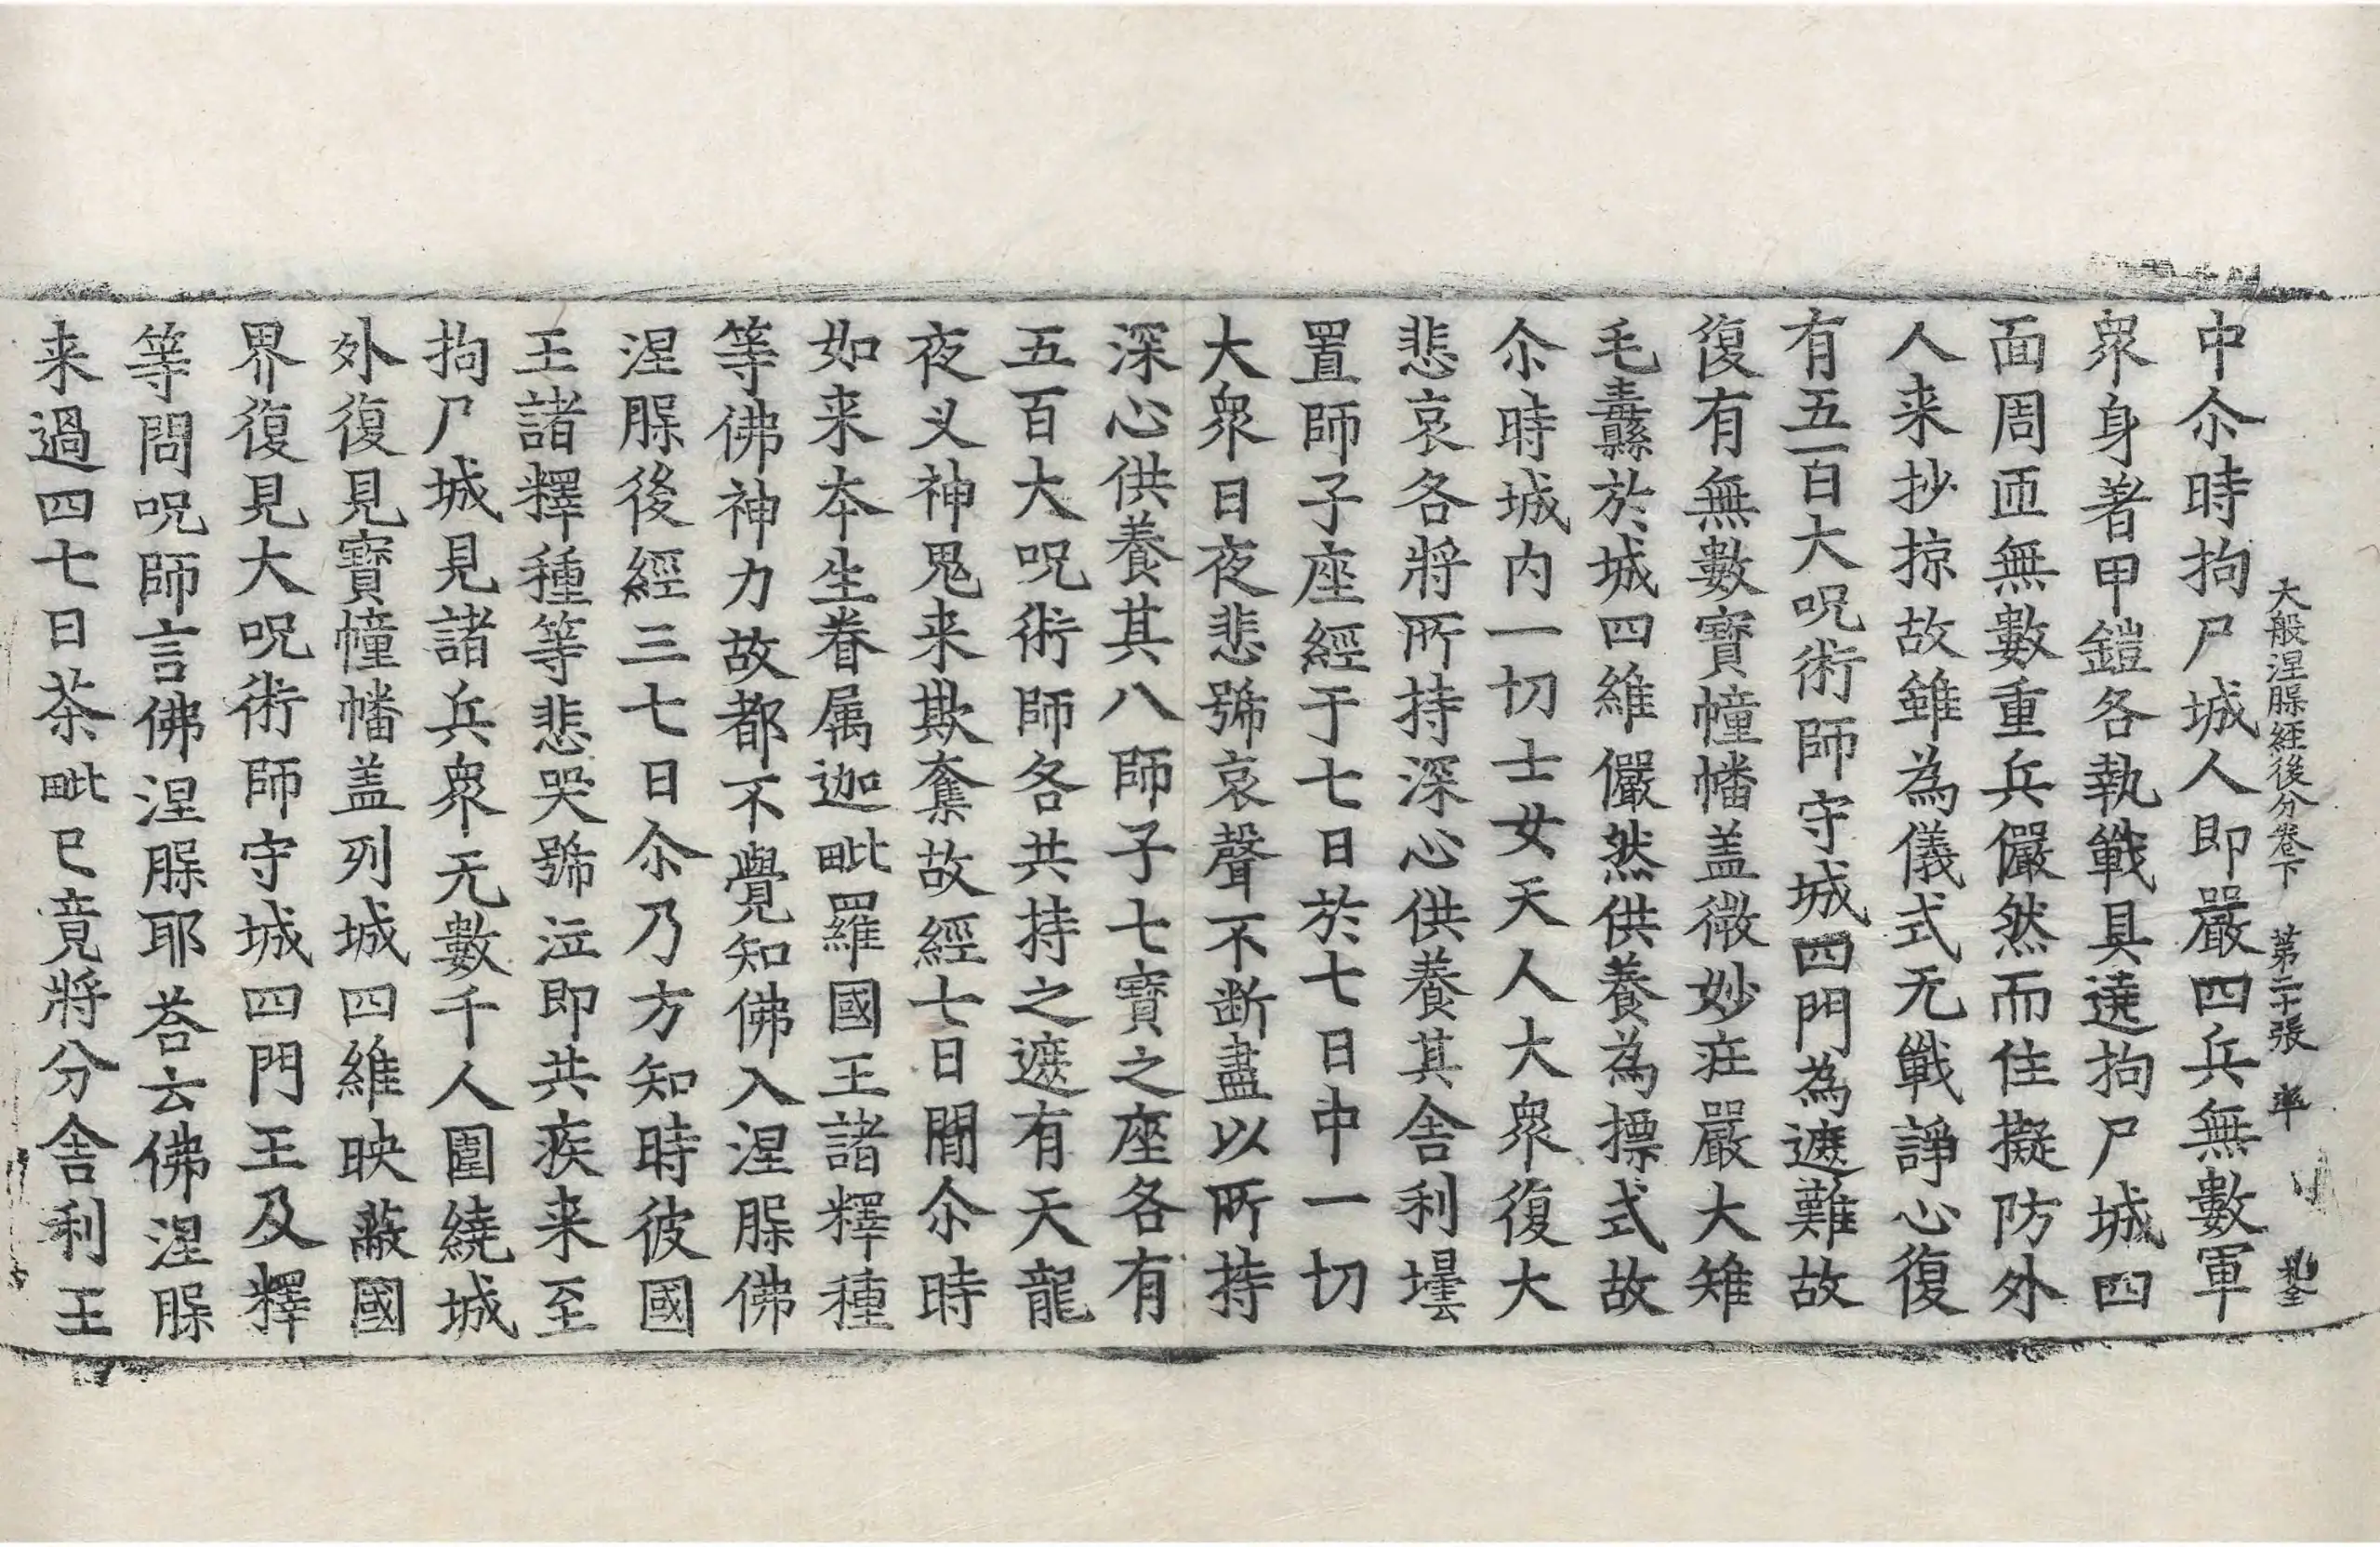 大般涅脲経後分卷下 第二十張 率
中尒時拘尸城人即嚴四兵無數軍
衆身著甲鎧各執戰具遶拘尸城四
面周匝無數重兵儼然而住擬防外
人来抄掠故雖為儀式无戰諍心復
有五百大呪術師守城四門為遮難故
復有無數寳幢幡盖微妙莊嚴大雉
毛纛縣於城四維儼然供養為摽式故
尒時城内一切士女天人大衆復大
悲哀各將所持深心供養其舍利壜
置師子座經于七日於七日中一切
大衆日夜悲號哀聲不断盡以所持
深心供養其八師子七寳之座各有
五百大呪術師各共持之遮有天龍
夜义神鬼来欺奪故經七日閒尒時
如来夲生眷属迦毗羅國王諸釋種
等佛神力故都不覺知佛入涅脲佛
涅脲後經三七日尒乃方知時彼國
王諸釋種等悲哭號泣即共疾来至
拘尸城見諸兵衆无數千人圍繞城
外復見寳幢幡盖列城四維映蔽國
界復見大呪術師守城四門王及釋
等問呪師言佛涅脲耶荅云佛涅脲
来過四七日茶毗已竟將分舍利王